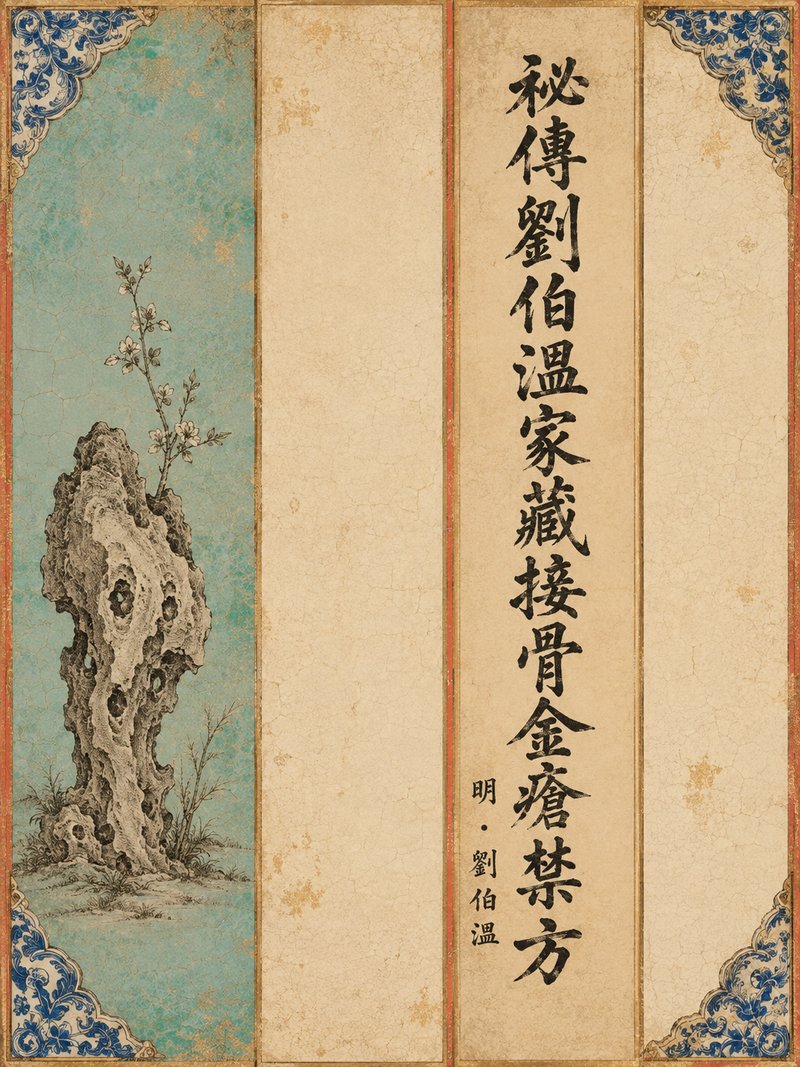 秘傳劉伯溫家藏接骨金瘡禁方
明·劉伯溫